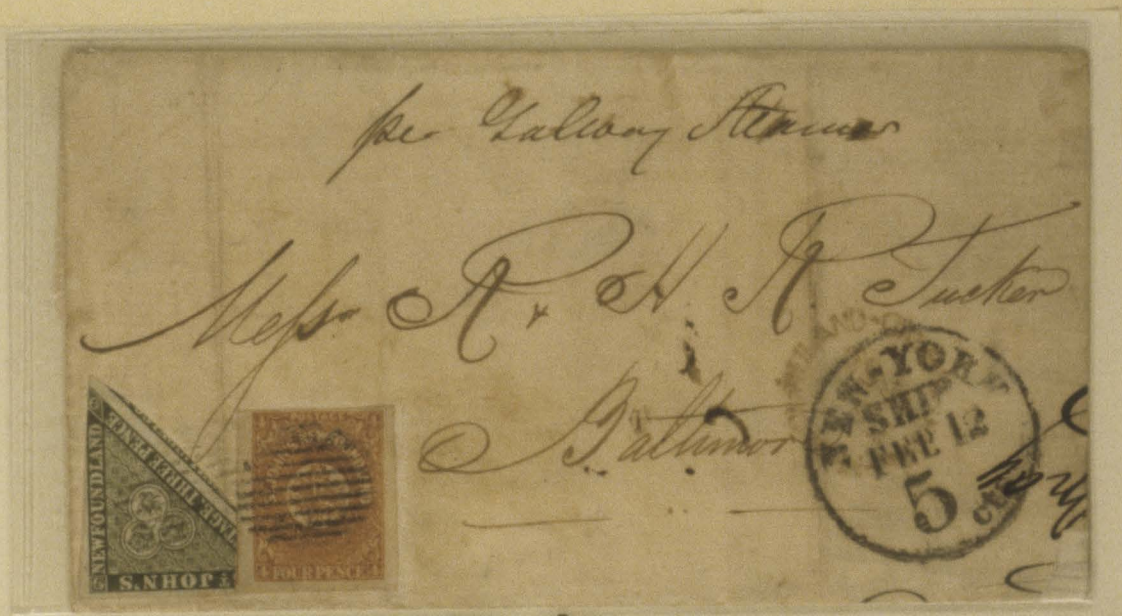 per Galway Steamer
Messr R & H R Tucker
Baltimore
NEW-YORK
SHIP
FEB 12
5
cts
NEWFOUNDLAND
AGE THREE PENCE
ST. JOHN'S
POSTAGE
FOUR PENCE